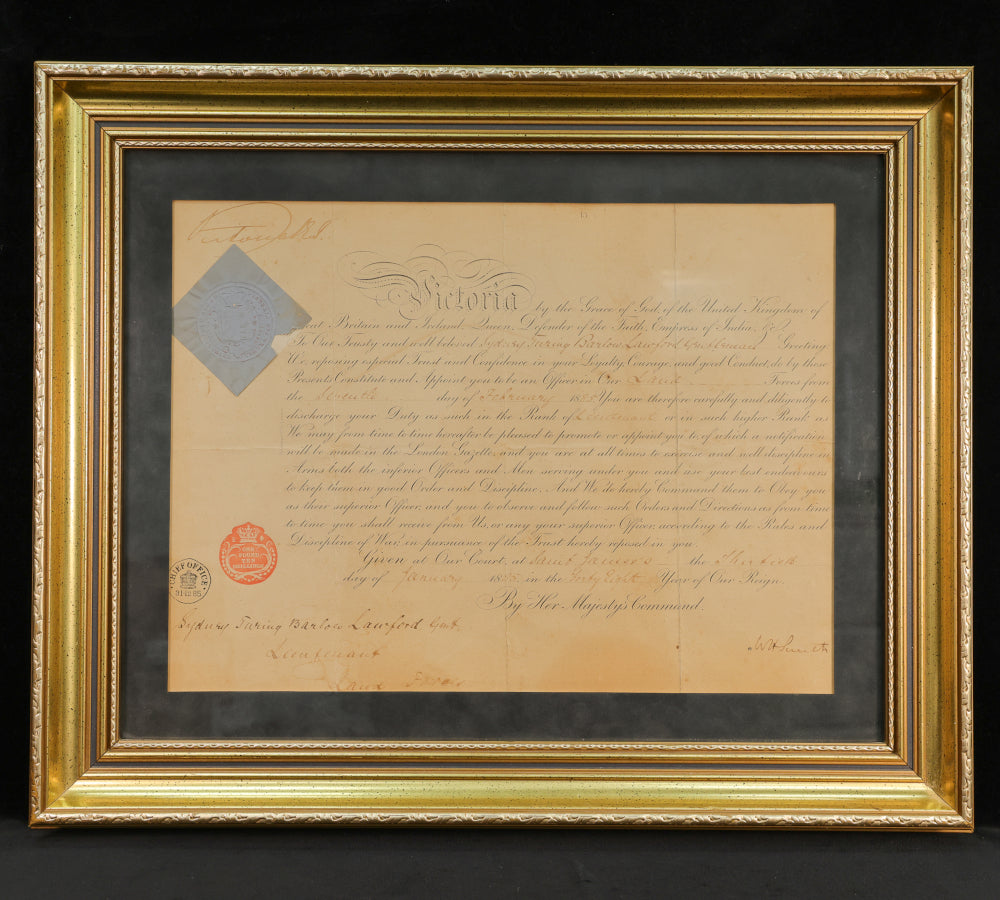 Victoria R.I.
Victoria by the Grace of God, of the United Kingdom of
Great Britain and Ireland, Queen, Defender of the Faith, Empress of India, &c.
To Our Trusty and well beloved Sydney Turing Barlow Lawford Gentleman Greeting
We, reposing especial Trust and Confidence in your Loyalty, Courage, and good Conduct, do by these
Presents Constitute and Appoint you to be an Officer in Our Land Forces from
the Seventh day of February 1885 You are therefore carefully and diligently to
discharge your Duty as such in the Rank of Lieutenant or in such higher Rank as
We may from time to time hereafter be pleased to promote or appoint you to, of which a notification
will be made in the London Gazette, and you are at all times to exercise and well discipline in
Arms both the inferior Officers and Men serving under you and use your best endeavours
to keep them in good Order and Discipline. And We do hereby Command them to Obey you
as their superior Officer, and you to observe and follow such Orders and Directions as from time
to time you shall receive from Us, or any your superior Officer, according to the Rules and
Discipline of War, in pursuance of the Trust hereby reposed in you.
Given at Our Court, at Saint James's the Thirtieth
day of January 1885 in the Forty Eighth Year of Our Reign
By Her Majesty's Command.
ONE
POUND
TEN
SHILLINGS
CHIEF OFFICE
31·12·85
Sydney Turing Barlow Lawford Gent.
Lieutenant
Land Forces
WH Smith